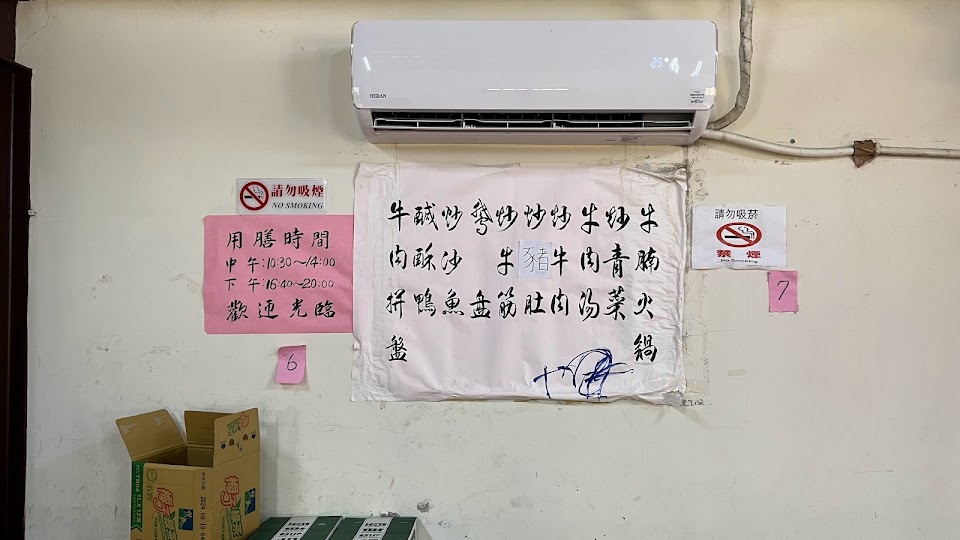 HERAN
請勿吸煙
NO SMOKING
用膳時間
中午:10:30~14:00
下午:16:40~20:00
歡迎光臨
6
牛腩火鍋
炒青菜
牛肉湯
炒牛肉
炒豬肚
炒牛筋
鵝盘
炒沙魚
鹹酥鴨
牛肉拼盤
請勿吸菸
禁煙
No Smoking
7